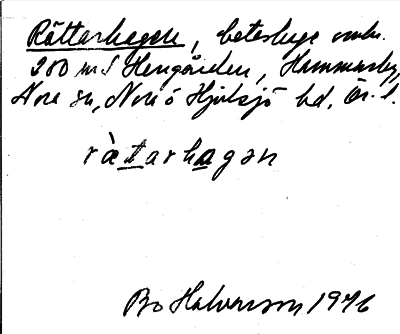 Råttarhagen, beteshage omkr.
200 m S Herrgården, Hammarby,
Nora sn, Nora o Hjulsjö bd, Ör. l.
ràtarhagan
Bo Halvarson 1976